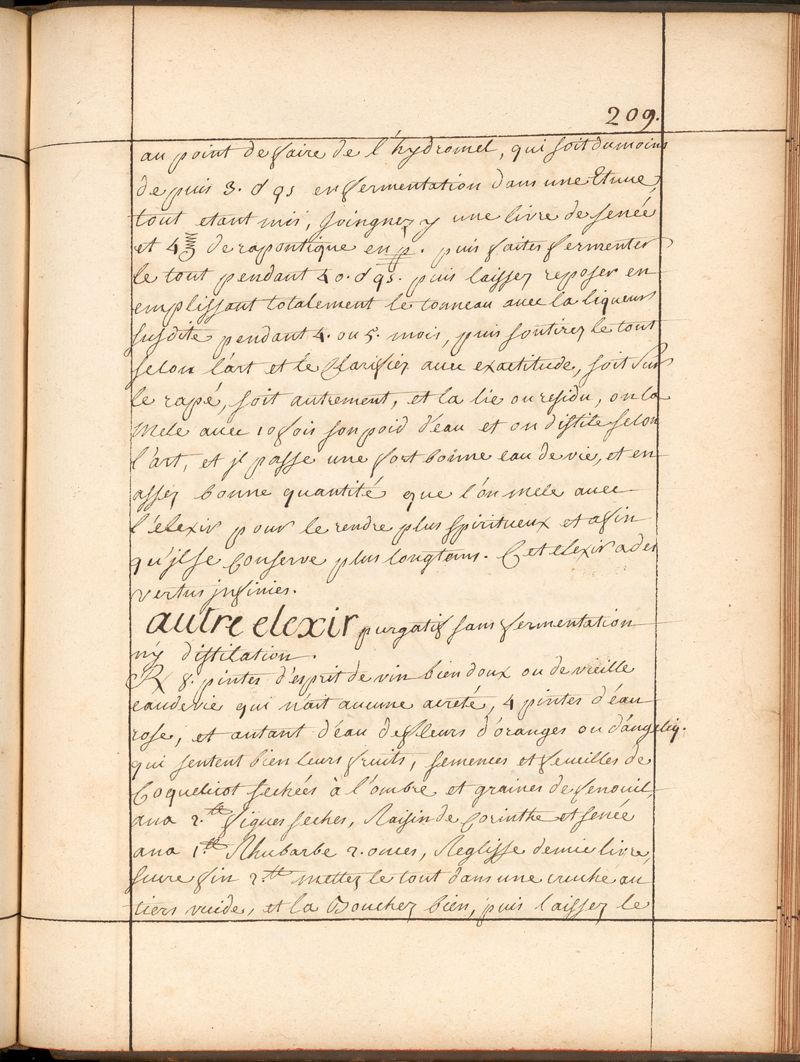 209.
au point de faire de l'hydromel, qui soit du moins
depuis 3. d qs en fermentation dans une Etuve,
tout etant mis, joingnez y une livre de sené
et 4 ℥ de rapontique en p. puis faites fermenter
le tout pendant 40. d qs. puis laissez reposer en
emplissant totalement le tonneau avec la liqueur
susdite pendant 4. ou 5. mois, puis soutirez le tout
selon l'art et le Clarifiez avec exactitude, soit sur
le rapé, soit autrement, et la lie ou residu, on la
mele avec 10 fois son poid d'eau et on distile selon
l'art, et jl passe une fort bonne eau de vie, et en
assez bonne quantité que l'on mele avec
l'élexir pour le rendre plus spiritueux et afin
qu'jl se Conserve plus longtems. Cet elexir a des
vertus jnfinies.
autre elexir purgatif sans fermentation
ny distilation.
℞ 8. pintes d'esprit de vin bien doux ou de vieille
eau de vie qui n'ait aucune acreté, 4 pintes d'eau
rose, et autant d'eau de fleurs d'oranges ou d'angeliq.
qui sentent bien leurs fruits, semences et feuilles de
Coquelicot sechées à l'ombre et graines de fenouil,
ana 2.lb figues seches, Raisin de Corinthe et sené
ana 1lb Rhubarbe 2. onces, Reglisse demie livre,
sucre fin 2.lb mettez le tout dans une cruche au
tiers vuide, et la Bouchez bien, puis laissez le